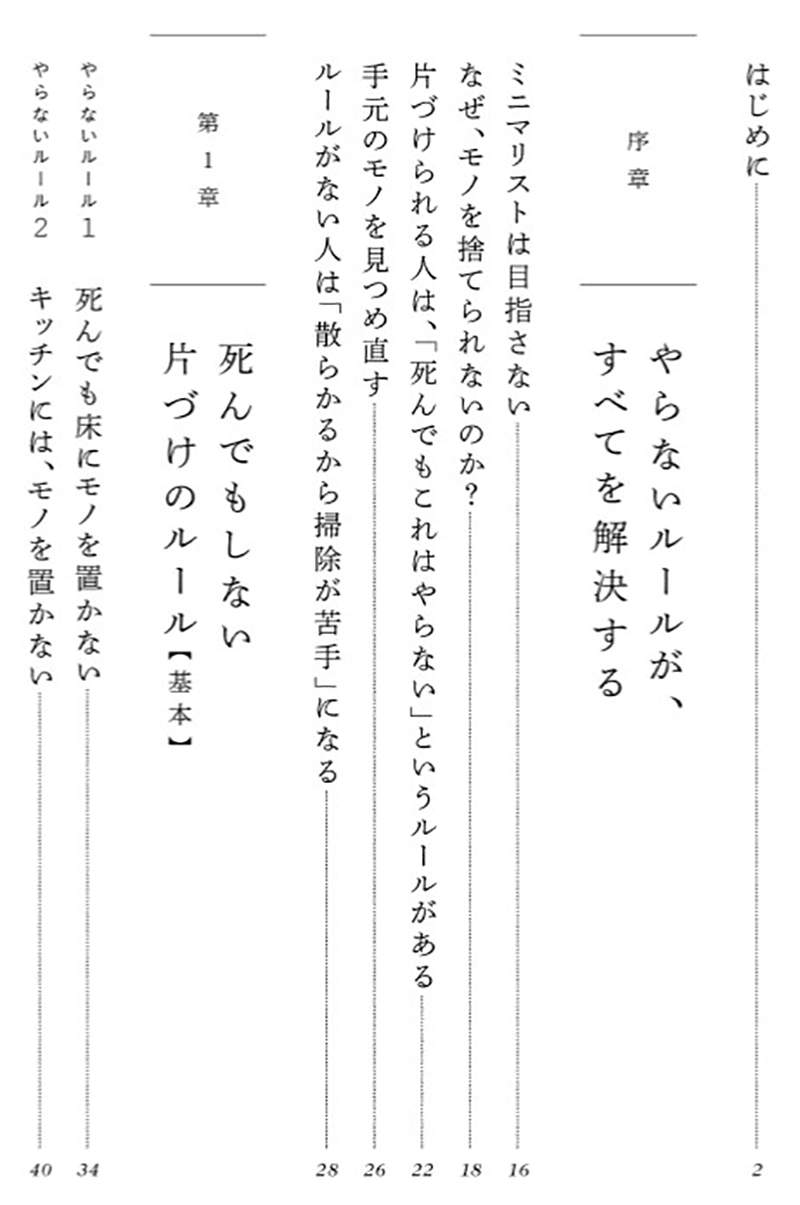 はじめに 2
序章
やらないルールが、
すべてを解決する
ミニマリストは目指さない 16
なぜ、モノを捨てられないのか？ 18
片づけられる人は、「死んでもこれはやらない」というルールがある 22
手元のモノを見つめ直す 26
ルールがない人は「散らかるから掃除が苦手」になる 28
第1章
死んでもしない
片づけのルール【基本】
やらないルール1 死んでも床にモノを置かない 34
やらないルール2 キッチンには、モノを置かない 40